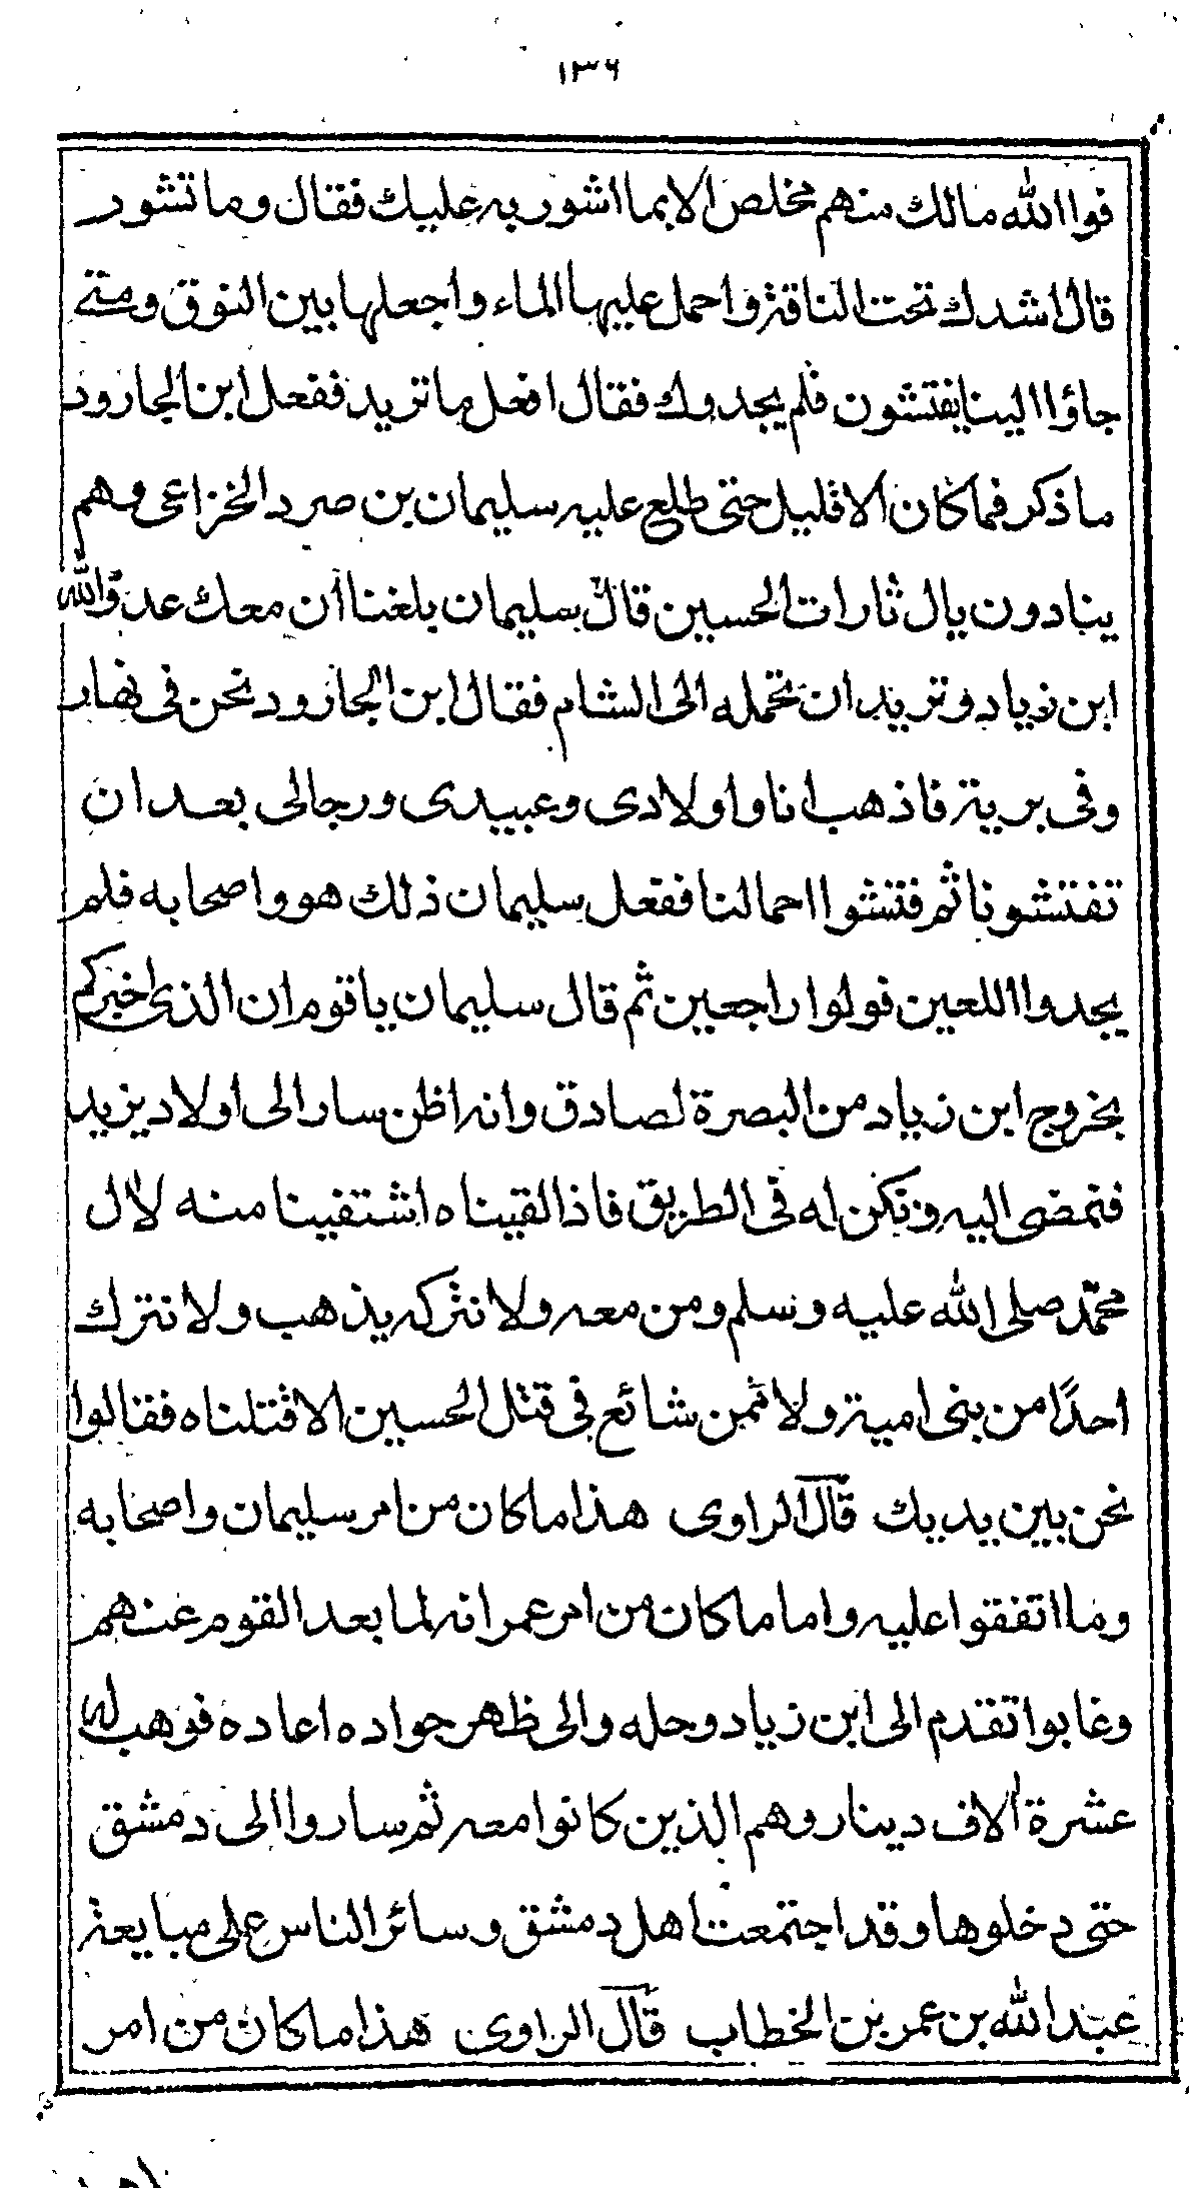 ١٣٦
فواالله مالك منهم مخلص الا بما اشور به عليك فقال وما تشور
قال اشدك تحت الناقة واحمل عليها الماء واجعلها بين النوق ومتى
جاؤا الينا يفتشون فلم يجدوك فقال افعل ما تريد ففعل ابن الجارود
ما ذكر فما كان الا قليل حتى طلع عليه سليمان بن صرد الخزاعى وهم
ينادون يال ثارات الحسين قال سليمان بلغنا أن معك عدوّالله
ابن زياد وتريد ان تحمله الى الشام فقال ابن الجارود نحن فى نهار
وفى برية فاذهب انا واولادى وعبيدى ورجالى بعد ان
تفتشونا ثم فتشوا احمالنا ففعل سليمان ذلك هو واصحابه فلم
يجدوا اللعين فولوا راجعين ثم قال سليمان يا قوم ان الذى اخبركم
بخروج ابن زياد من البصرة لصادق وانه اظن سار الى اولاد يزيد
فنمضى اليه ونكن له فى الطريق فاذا لقيناه اشتفينا منه لال
محمّد صلى الله عليه وسلم ومن معه ولا نتركه يذهب ولا نترك
احدًا من بنى امية ولا ثمن شائع فى قتل الحسين الا قتلناه فقالوا
نحن بين يديك قال الراوى هذا ما كان من امر سليمان واصحابه
وما اتفقوا عليه واما ما كان من امر عمر انه لما بعد القوم عنهم
وغابوا تقدم الى ابن زياد وحله والى ظهر جواده اعاده فوهب له
عشرة ألاف دينار وهم الذين كانوا معه ثم ساروا الى دمشق
حتى دخلوها وقد اجتمعت اهل دمشق وسائر الناس على مبايعة
عبد الله بن عمر بن الخطاب قال الراوى هذا ما كان من امر